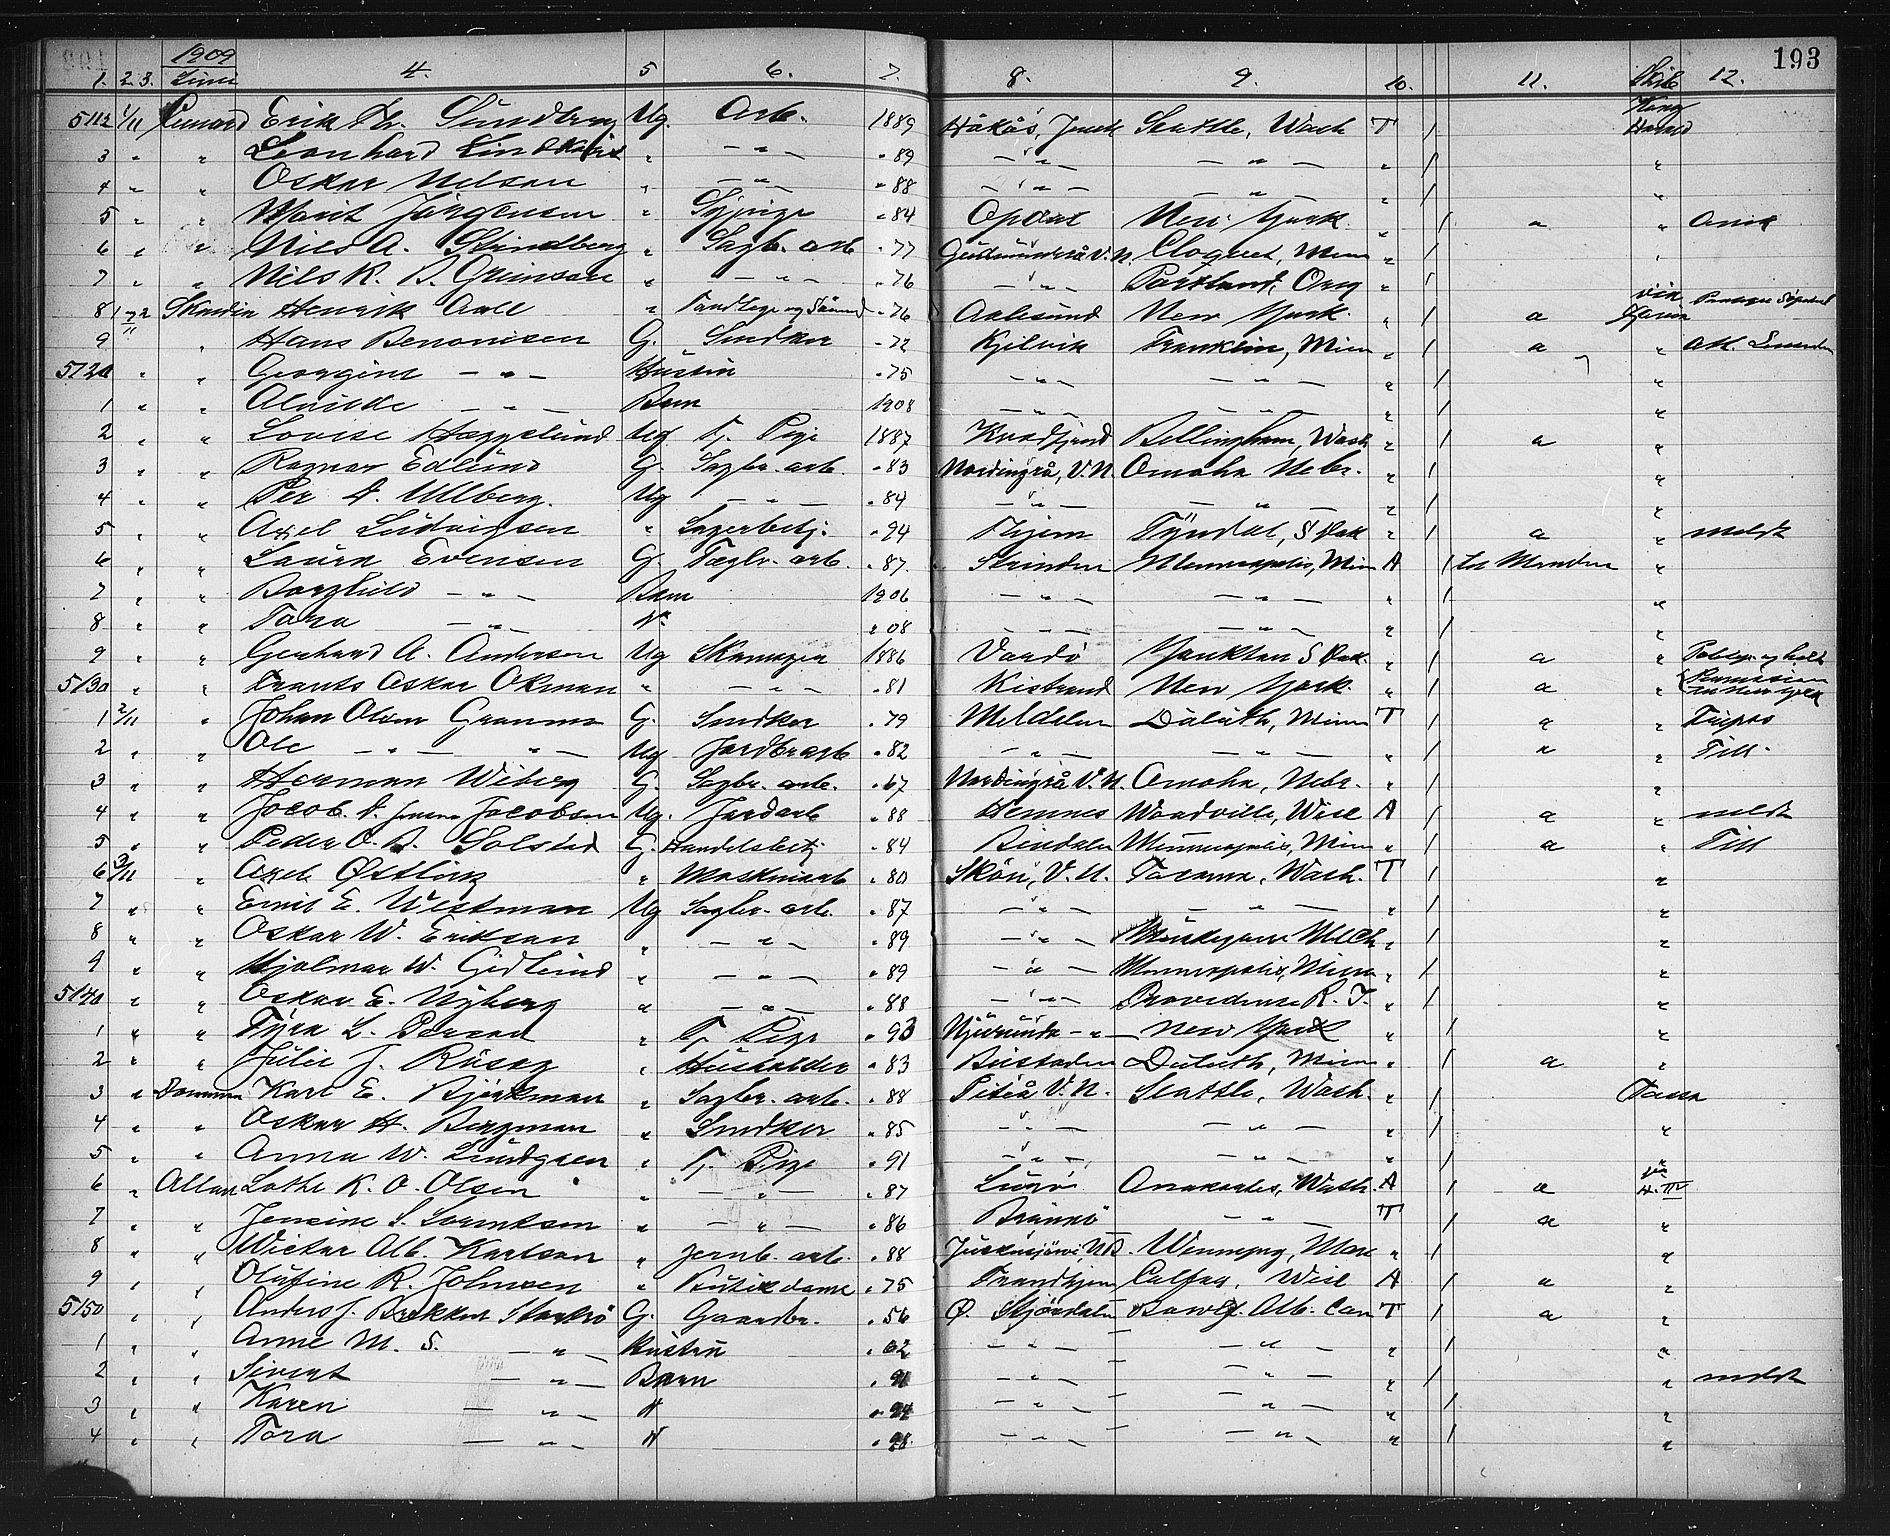 193
1909
1. 2. 3. Linie 4. 5 6. 7. 8. 9. 10. 11. Skib 12.
5112 1/11 Cunard Erik Sundberg Ug. Arb. 1889 Seattle, Wash T / Kong Harald
3 " " Leonhard " — " — " 89 — " — — " — " / "
4 " " Oskar Nelson " — " — " 88 — " — — " — " / "
5 " " Marit Jörgensen " Sypige " 84 Opdal New York. " / a "
6 " " Nils A. Strindberg " Sagb. arb " 77 Cloquet, Minn " / "
7 " " Nils K. " — " — " 76 — " — Portland, Oreg " /
8 Skandia Henrik Aall " " 76 Aalesund New York. " / a
9 " Hans Benonisen G. Snedker " 72 Kjelvik Franklin, Minn " / a "
5120 " " Georgine — " — Hustru " 75 — " — — " — " / "
1 " " — " — Barn 1908 — " — — " — " / "
2 " " Lovise Hæggelund Ug Tj. Pige 1887 Kvædfjord Bellingham, Wash " / a "
3 " " Ragnar Edlund G. Sagbr. arb. " 83 Nordingrå, V.N. Omaha Nebr. " / "
4 " " Per A. Ullberg Ug — " — " 84 — " — — " — " / "
5 " " Axel Ludvigsen " Lagerbetj. " 94 Thjem Tyndal, S Dak " / a " meldt
6 " " Laura Evensen G. Fagbr. arb. " 87 Strinden Minneapolis, Minn A / "
7 " " Borghild — " — Barn 1906 — " — — " — " / "
8 " " Tora — " — " " 08 — " — — " — " / "
9 " " Gerhard A. Andersen Ug Skomager 1886 Vardö Yankton S Dak. " / a "
5130 " " Frants OskarÖkman " — " — " 81 Kistrand New York. " / a "
1 2/11 " Johan Olsen Granmo G. Snedker " 79 Meldalen Duluth, Minn T / a "
2 " " Ole — " — " — Ug Jordbrarb " 82 — " — — " — " / a " Till.
3 " " Herman Wiberg G. Sagbr. arb. " 67 Nordingrå V.N. Omaha, Nebr. " / "
4 " " Jacob A. Jensen Jacobsen Ug. Jordarb " 88 Hemnes Woodville, Wisc A / a " meldt
5 " " Peder O. A. Solstad G. Handelsbetj " 84 Bindalen Minneapolis, Minn " / a " Till
6 3/11 " Axel Østling " Maskinarb " 80 Skön, V.N. Tacoma, Wash. T / "
7 " " Emil E. Westman Ug Sagbr. arb. " 87 — " — — " — " / "
8 " " Oskar W. Erikson " — " — " 89 — " — Muskegon Mich " / "
9 " " Hjalmar W. Gidlund " — " — " 89 — " — Minneapolis, Minn " / "
5140 " " Oskar E. Nyberg " — " — " 88 — " — Providense R. I. " / "
1 " " Tyra L. " Tj. Pige " 93 Njurunda — " — New York " / "
2 " " Julie J. " Husholder " 83 Beistaden Duluth, Minn " / a "
3 " Dominion Karl E. Björkman " Sagbr. arb. " 88 Piteå V.N. Seattle, Wash. " /
4 " " Oskar H. Bergman " Snedker " 85 — " — — " — " / "
5 " " Anna W. Lundgren " Tj. Pige " 91 — " — — " — " / "
6 " Allan Lothe K. O. Olsen " — " — " 87 Lurö Anakortes, Wash. A / a
7 " " Jensine S. Lorentsen " — " — " 86 Brönnö — " — T / a "
8 " " Wictor Alb. Karlson " Jernb. arb. " 88 Winnipeg, Man " / "
9 " " Olufine R. Johnsen " Butikdame " 75 Trondhjem Colfax, Wisc A / a "
5150 " " Anders J. Brekken G. Gaardbr. " 56 Ø. Stjördalen Alb. Can T / a "
1 " " Anne M. S. — " — Hustru " 62 — " — — " — " / "
2 " " Sivert — " — Barn " 91 — " — — " — " / " meldt
3 " " Karen — " — " " 94 — " — — " — " / "
4 " " Tora — " — " " 98 — " — — " — " / "